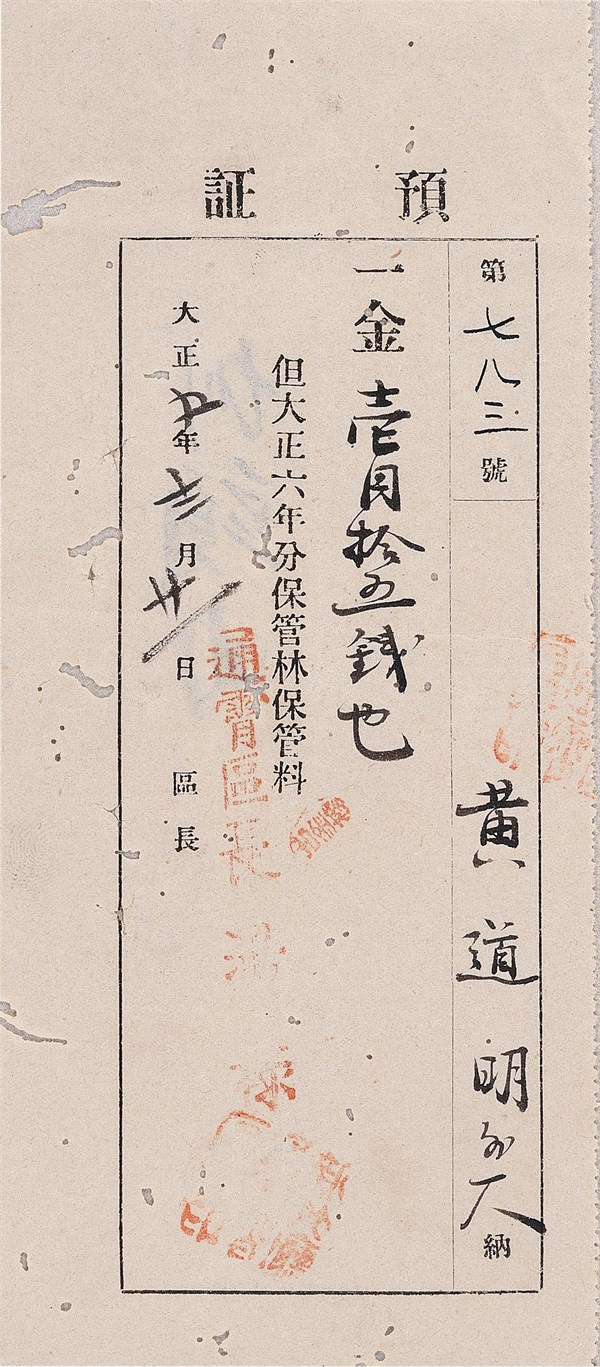 預証
第七八三號 黃道明外一人納
一金壹円拾五錢也
但大正六年分保管林保管料
大正七年三月廿一日 區長
通霄區長